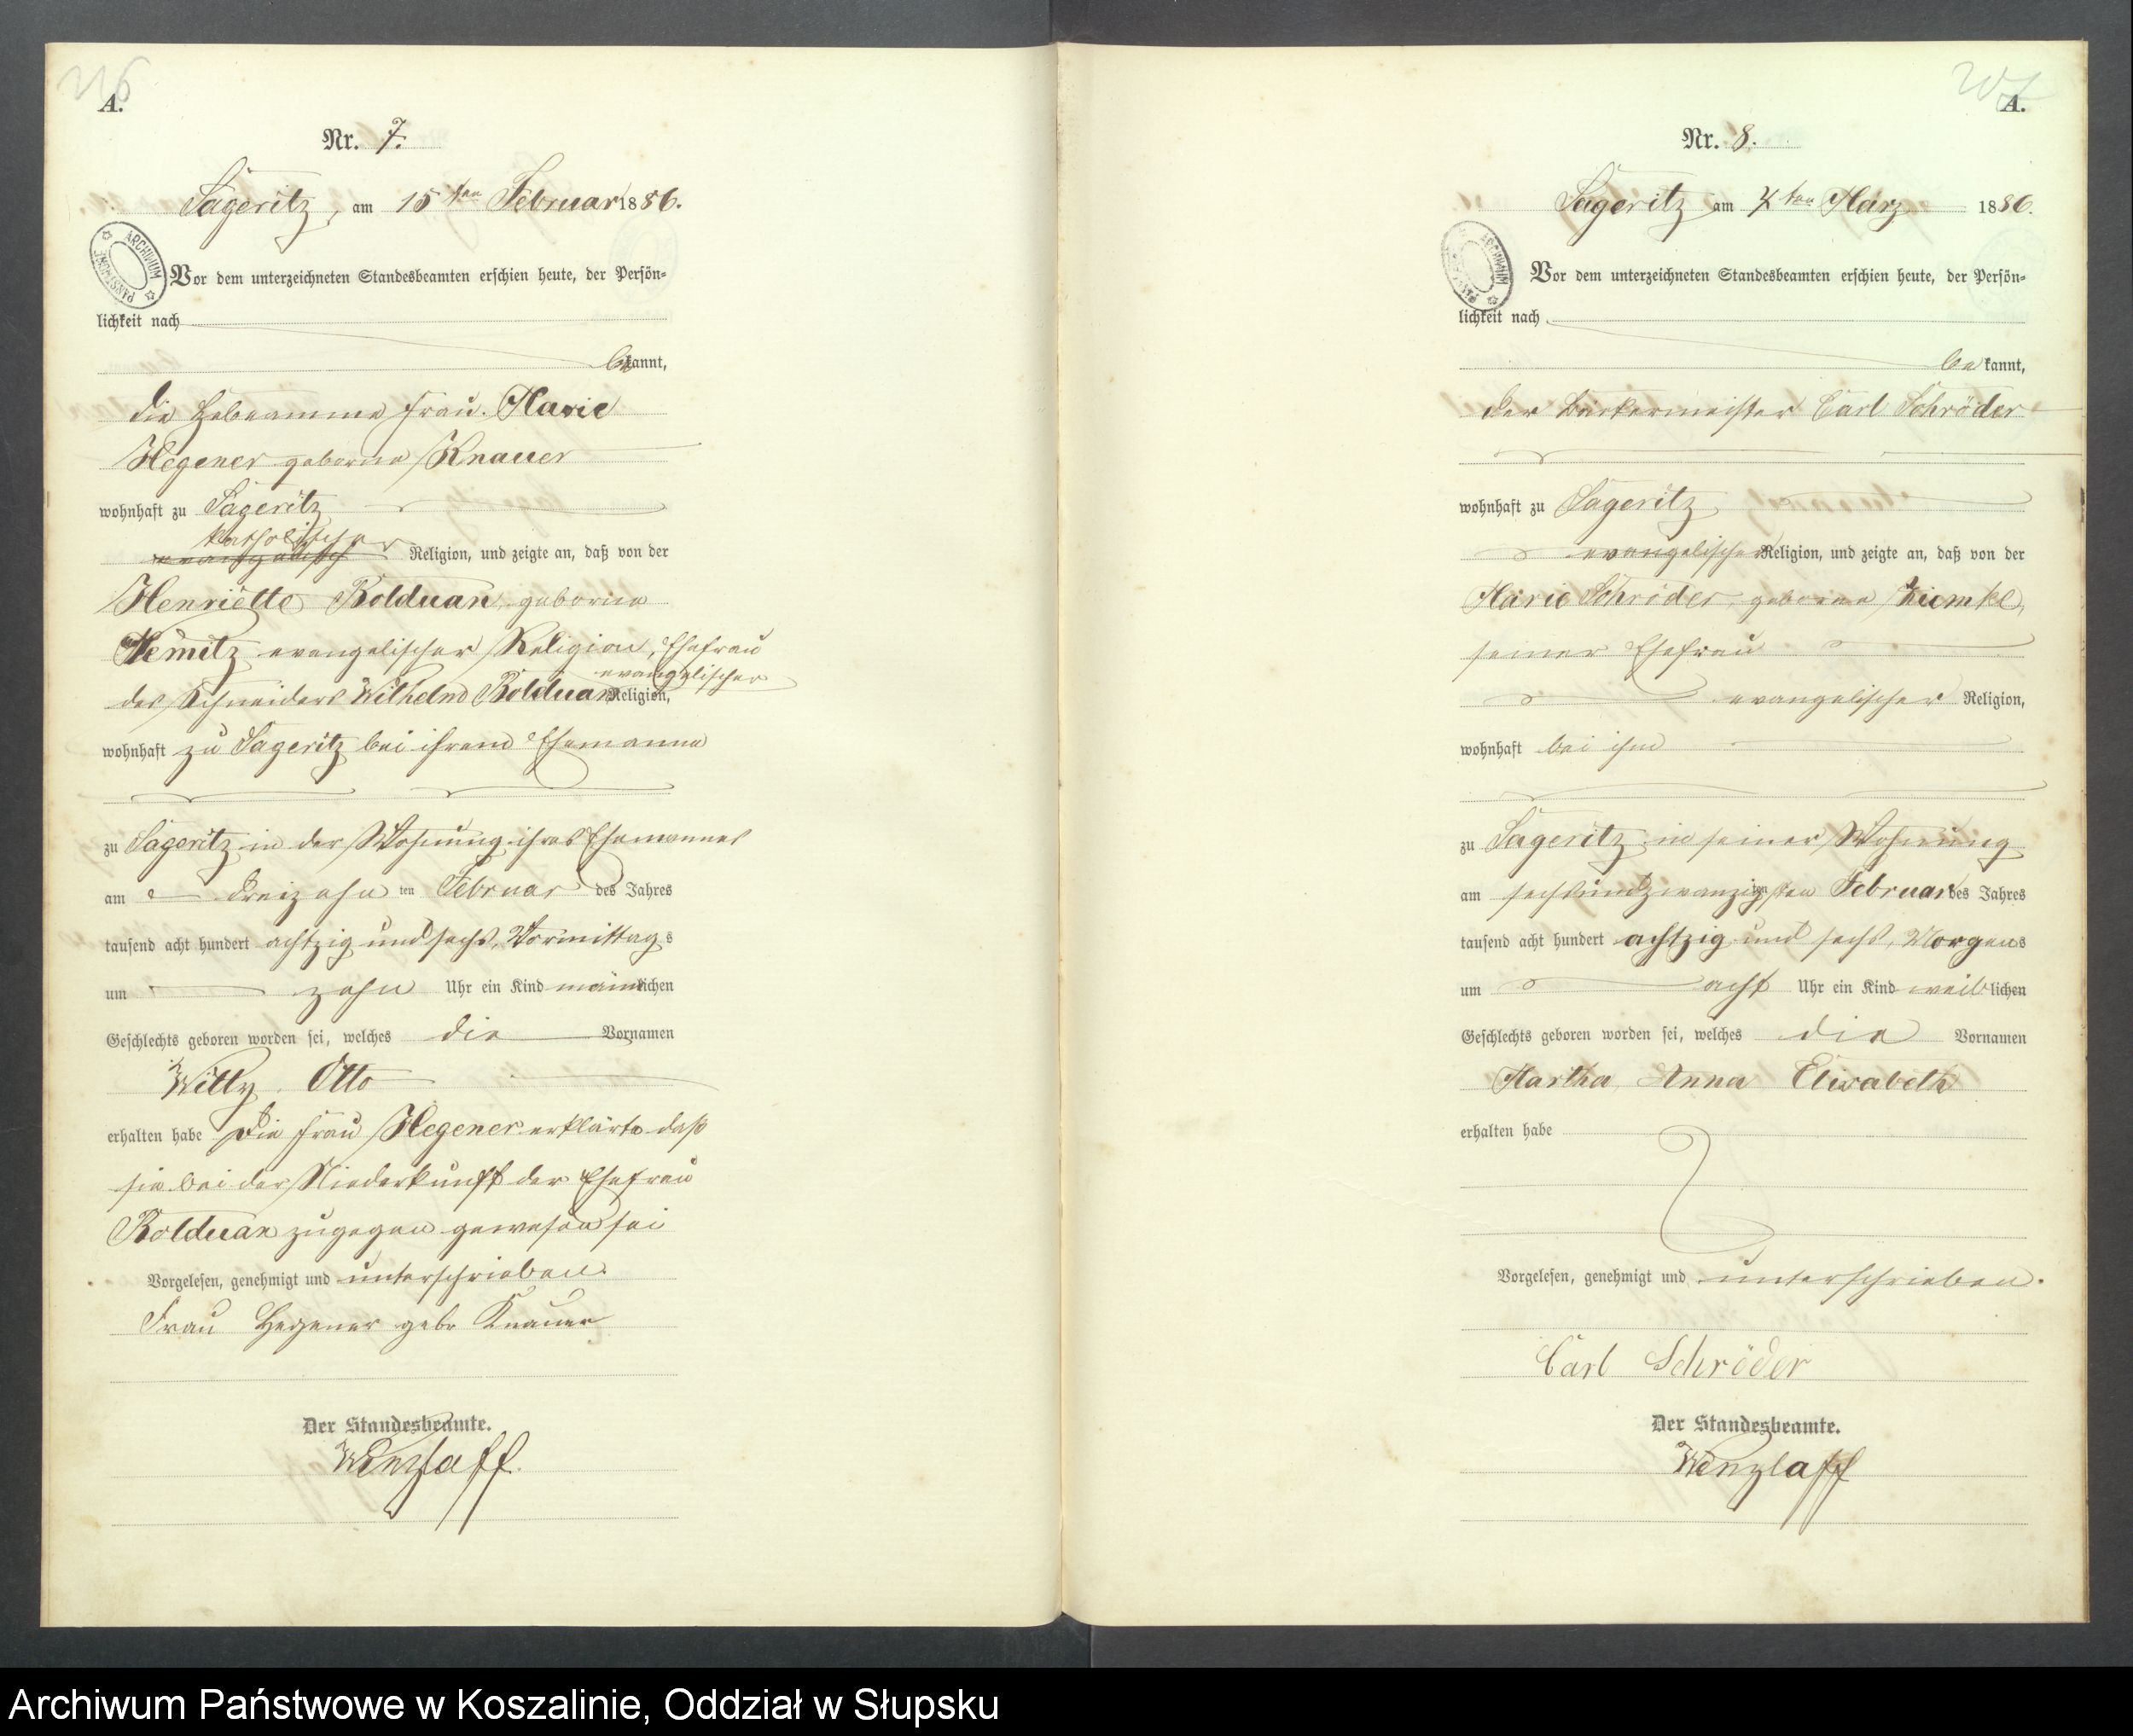 A.
Nr. 7.
Sageritz, am 15ten Februar 1886.
ARCHIWUM PAŃSTWOWE
Vor dem unterzeichneten Standesbeamten erschien heute, der Persön-
lichkeit nach
bekannt,
die Hebeamme Frau Marie
Hegener geborne Knauer
wohnhaft zu Sageritz
katholischer
evangelisch Religion, und zeigte an, daß von der
Henriette Bolduan, geborne
Nemitz evangelischer Religion, Ehefrau
evangelischer
des Schneiders Wilhelm Bolduan Religion,
wohnhaft zu Sageritz bei ihrem Ehemanne
zu Sageritz in der Wohnung ihres Ehemannes
am dreizehn ten Februar des Jahres
tausend acht hundert achtzig und sechs, Vormittags
um zehn Uhr ein Kind männlichen
Geschlechts geboren worden sei, welches die Vornamen
Willy Otto
erhalten habe Die Frau Hegener erklärte daß
sie bei der Niederkunft der Ehefrau
Bolduan zugegen gewesen sei
Vorgelesen, genehmigt und unterschrieben.
Frau Hegener gebr Knauer
Der Standesbeamte.
Wenzlaff.
A.
Nr. 8.
Sageritz am 4ten März 1886.
ARCHIWUM PAŃSTWOWE
Vor dem unterzeichneten Standesbeamten erschien heute, der Persön-
lichkeit nach
bekannt,
der Bäckermeister Carl Schröder
wohnhaft zu Sageritz
evangelischer Religion, und zeigte an, daß von der
Marie Schröder, geborne Ziemke,
seiner Ehefrau
evangelischer Religion,
wohnhaft bei ihm
zu Sageritz in seiner Wohnung
am sechsundzwanzigsten ten Februar des Jahres
tausend acht hundert achtzig und sechs, Morgens
um acht Uhr ein Kind weiblichen
Geschlechts geboren worden sei, welches die Vornamen
Martha Anna Elisabeth
erhalten habe
Vorgelesen, genehmigt und unterschrieben.
Carl Schröder
Der Standesbeamte.
Wenzlaff
Archiwum Państwowe w Koszalinie, Oddział w Słupsku